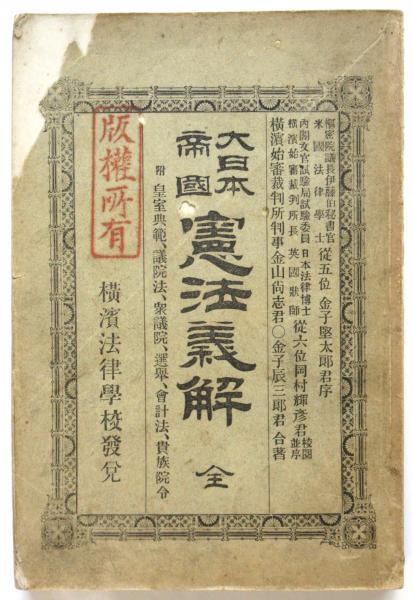 樞密院議長伊藤伯秘書官
米國法律學士
從五位金子堅太郎君序
內閣文官試驗局試驗委員 日本法律博士
橫濱始審裁判所長 英國狀師
從六位岡村輝彥君校閱並序
橫濱始審裁判所判事金山尙志君○金子辰三郎君合著
大日本
帝國
憲法義解
全
附 皇室典範、議院法、衆議院、選舉、會計法、貴族院令
橫濱法律學校發兌
版權所有